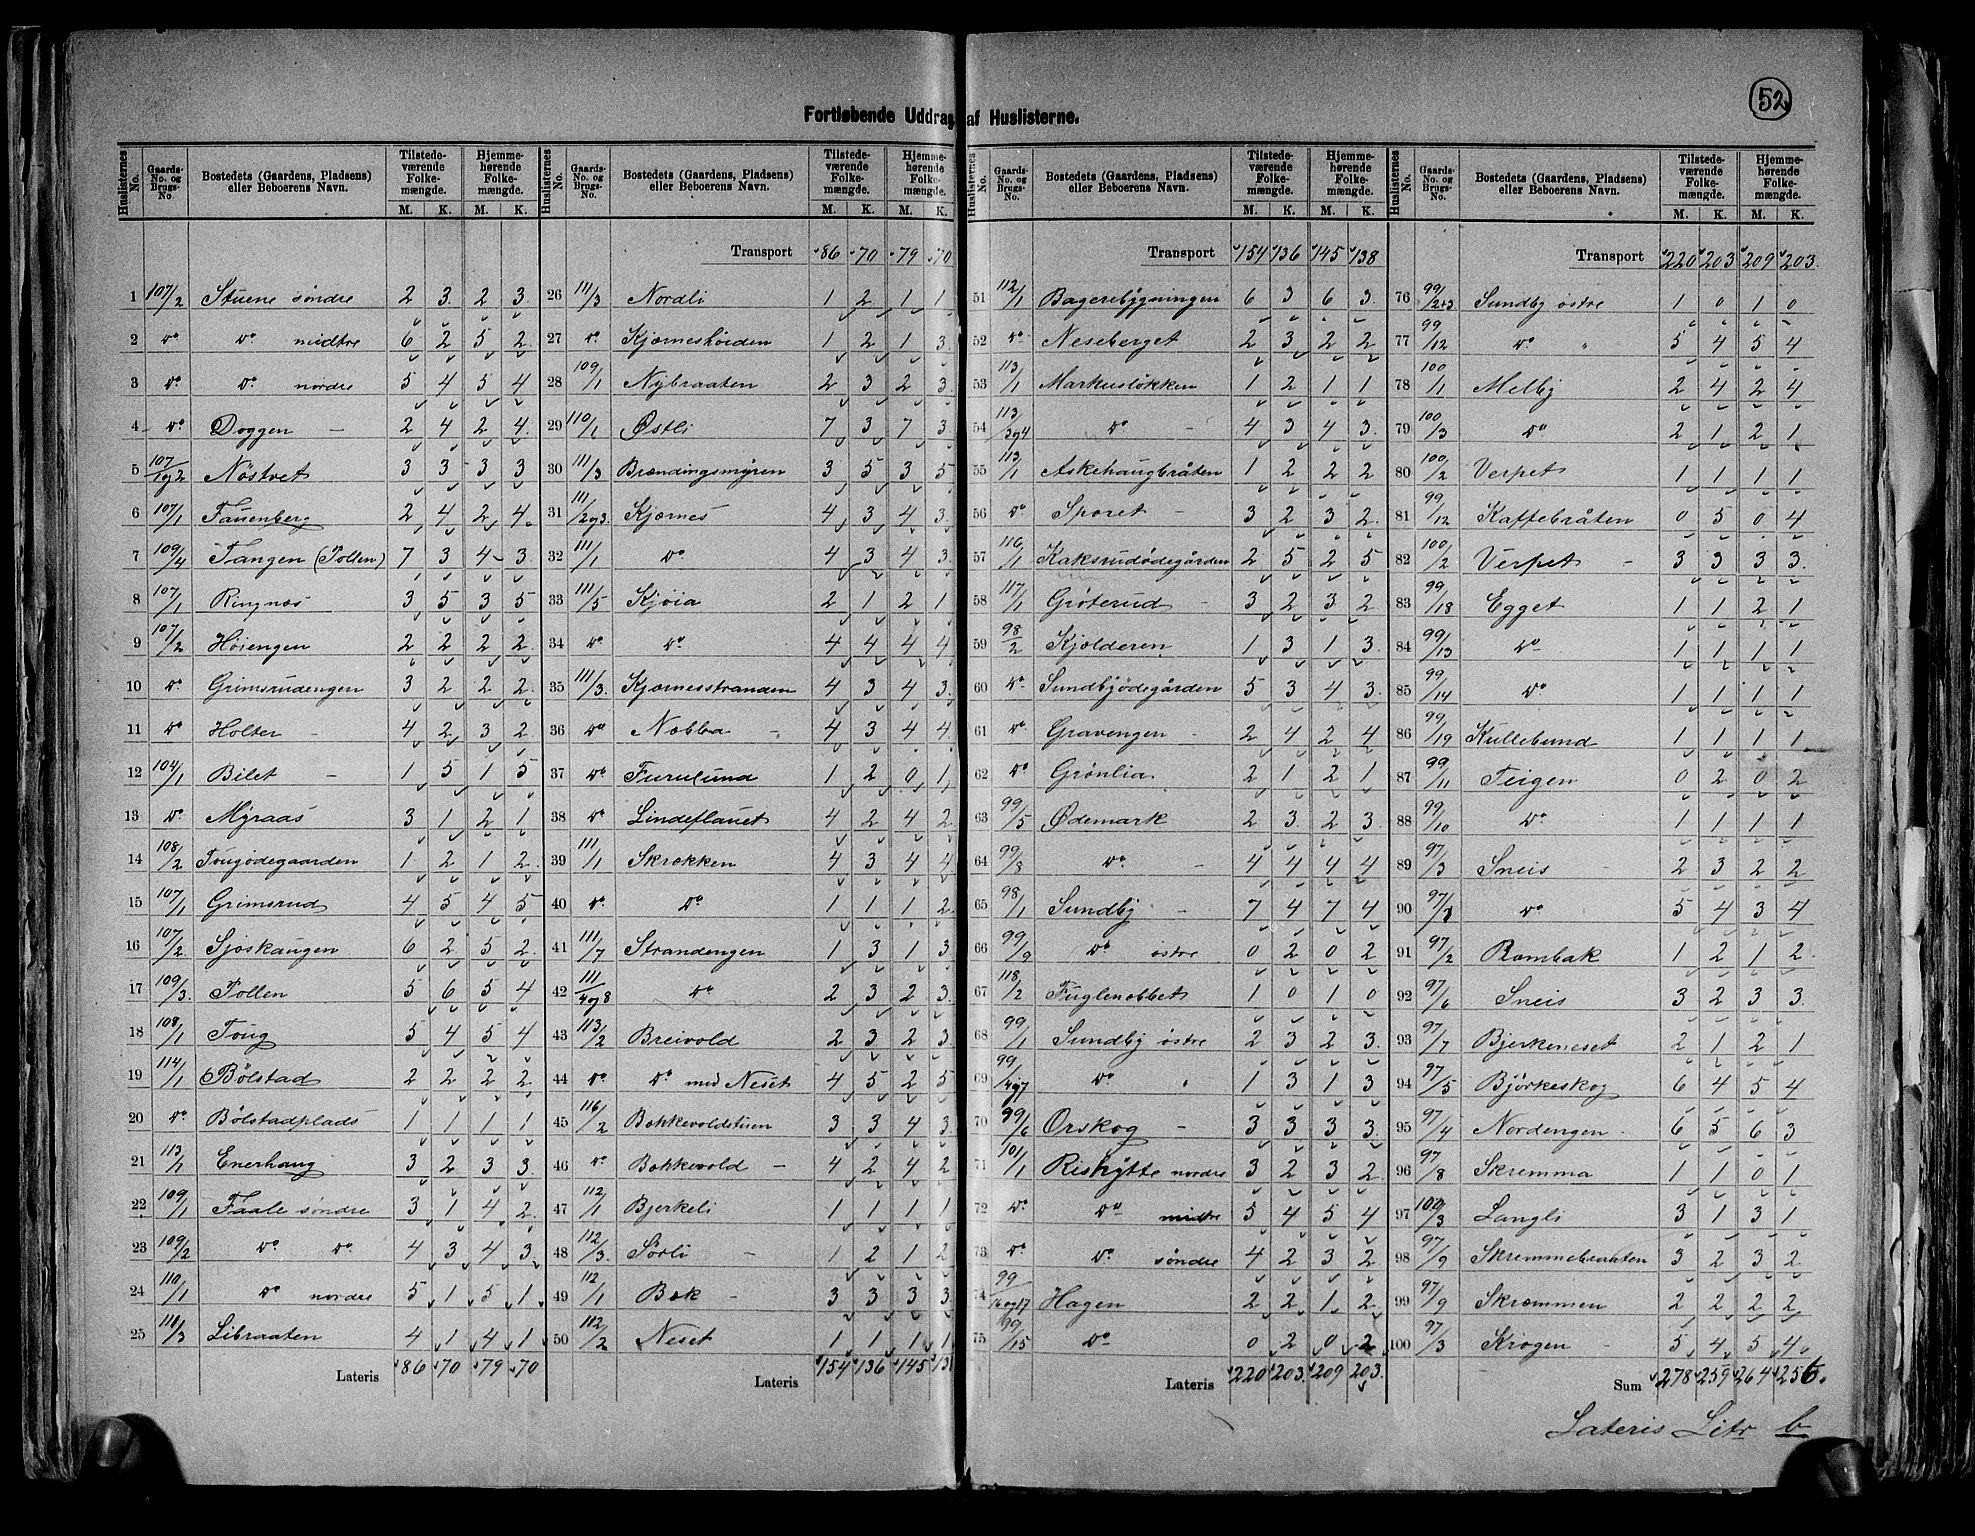 52
Fortløbende Uddrag af Huslisterne.
Huslisternes No. | Gaards-No. og Brugs-No. | Bostedets (Gaardens, Pladsens) eller Beboerens Navn. | Tilstedeværende Folkemængde. M. K. | Hjemmehørende Folkemængde. M. K.
1 107/2 Stuene søndre 2 3 2 3
2 Do Do midtre 6 2 5 2
3 Do Do nordre 5 4 5 4
4 Do Doggen 2 4 2 4
5 107/1og2 Nöstvet 3 3 3 3
6 107/1 Tauenberg 2 4 2 4
7 109/4 Tangen (Pollen) 7 3 4 3
8 107/1 Ringnæs 3 5 3 5
9 107/2 Höiengen 2 2 2 2
10 Do Grimsrudengen 3 2 2 2
11 Do Holter 4 2 3 2
12 104/1 Bilet 1 5 1 5
13 Do Myraas 3 1 2 1
14 108/2 Tougødegaarden 1 2 1 2
15 107/1 Grimsrud 4 5 4 5
16 107/2 Sjøskaugen 6 2 5 2
17 109/3 Pollen 5 6 5 4
18 108/1 Toug 5 4 5 4
19 114/1 Bölstad 2 2 2 2
20 Do Bölstadplads 1 1 1 1
21 113/1 Enerhaug 3 2 3 3
22 109/1 Faale søndre 3 1 4 2
23 109/2 Do Do 4 3 4 3
24 110/1 Do nordre 5 1 5 1
25 111/3 Libraaten 4 1 4 1
Lateris 86 70 79 70
Transport 86 70 79 70
26 111/3 Nordli 1 2 1 1
27 Do Kjærneshöiden 1 2 1 3
28 109/1 Nybraaten 2 3 2 3
29 110/1 Østli 7 3 7 3
30 111/3 Brændingsmyren 3 5 3 5
31 111/2og3 Kjærnes 4 3 4 3
32 111/1 Do 4 3 4 3
33 111/5 Kjøia 2 1 2 1
34 Do Do 4 4 4 4
35 111/3 Kjærnesstranden 4 3 4 3
36 Do Nabba 4 3 4 4
37 Do Furulund 1 2 0 1
38 Do Lindeflauet 4 2 4 2
39 111/1 Skrækken 4 3 4 4
40 Do Do 1 1 1 2
41 111/7 Strandengen 1 3 1 3
42 111/4og8 Do 2 3 2 3
43 113/2 Breivold 2 3 2 3
44 Do Do med Neset 4 5 2 5
45 116/2 Bokkevoldstuen 3 3 4 3
46 Do Bokkevold 4 2 4 2
47 112/1 Bjerkeli 1 1 1 1
48 112/3 Sörli 1 2 1 2
49 112/1 Bæk 3 3 3 3
50 112/2 Neset 1 1 1 1
Lateris 154 136 145 13
Transport 154 136 145 138
51 112/1 Bagerebygningen 6 3 6 3
52 Do Neseberget 2 3 2 2
53 113/1 Markusløkken 1 2 1 1
54 113/3og4 Do 4 3 4 3
55 113/1 Askehaugbråten 1 2 2 2
56 Do Sporet 3 2 3 2
57 116/1 Kaksrudödegården 2 5 2 5
58 117/1 Gröterud 3 2 3 2
59 98/2 Kjølderen 1 3 1 3
60 Do Sundbyödegården 5 3 4 3
61 Do Gravengen 2 4 2 4
62 Do Grönlia 2 1 2 1
63 99/5 Ødemark 2 3 2 3
64 99/8 Do 4 4 4 4
65 98/1 Sundby 7 4 7 4
66 99/9 Do östre 0 2 0 2
67 118/2 Fuglenebbet 1 0 1 0
68 99/1 Sundby östre 2 3 2 3
69 99/4og7 Do " 1 3 1 3
70 99/6 Orskog 3 3 3 3
71 101/1 Rishytte nordre 3 2 3 2
72 Do Do midtre 5 4 5 4
73 Do Do søndre 4 2 3 2
74 99/16og17 Hagen 2 2 1 2
75 99/15 Do 0 2 0 2
Lateris 220 203 209 203
Transport 220 203 209 203
76 99/2+3 Sundby östre 1 0 1 0
77 99/12 Do " 5 4 5 4
78 100/1 Melby 2 4 2 4
79 100/3 Do 2 1 2 1
80 100/2 Verpet 1 1 1 1
81 99/12 Kaffebråten 0 5 0 4
82 100/2 Verpet 3 3 3 3
83 99/18 Egget 1 1 2 1
84 99/13 Do 1 1 1 1
85 99/14 Do 1 1 1 1
86 99/19 Kullebund 1 1 1 1
87 99/11 Teigen 0 2 0 2
88 99/10 Do 1 1 1 1
89 97/3 Sneis 2 3 2 2
90 97/1 Do 5 4 3 4
91 97/2 Rombak 1 2 1 2
92 97/6 Sneis 3 2 3 3
93 97/7 Bjerkeneset 2 1 2 1
94 97/5 Björkeskog 6 4 5 4
95 97/4 Nordengen 6 5 6 3
96 97/8 Skremma 1 1 0 1
97 100/3 Langli 3 1 3 1
98 97/9 Skremmebraaten 3 2 3 2
99 97/9 Skræmmen 2 2 2 2
100 97/3 Krogen 5 4 5 4
Sum 278 259 264 256
Lateris Litr b